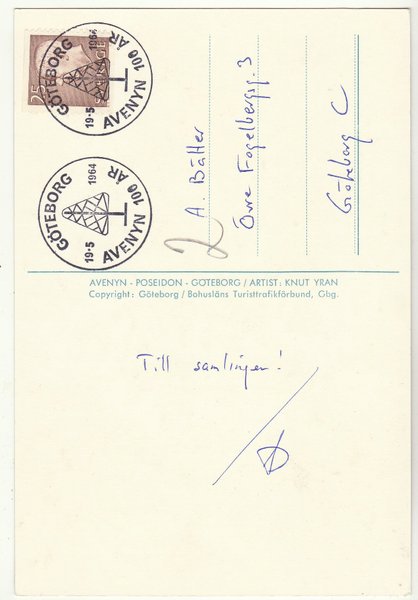 25
SVERIGE
GÖTEBORG
19·5 1964
AVENYN 100 ÅR
GÖTEBORG
19·5 1964
AVENYN 100 ÅR
2
A. Bätter
Övre Fogelbergsg. 3
Göteborg C
AVENYN - POSEIDON - GÖTEBORG / ARTIST: KNUT YRAN
Copyright: Göteborg / Bohusläns Turisttrafikförbund, Gbg.
Till samlingen!